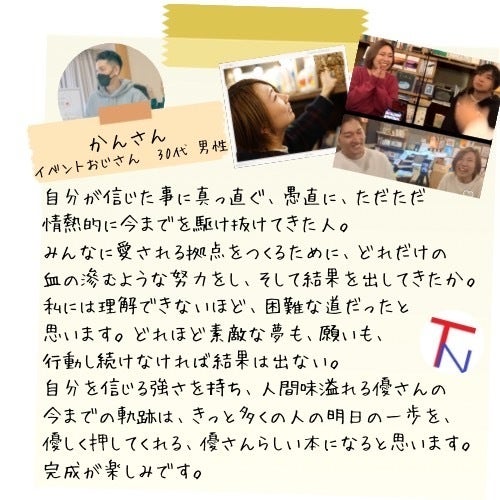 かんさん
イベントおじさん 30代 男性
自分が信じた事に真っ直ぐ、愚直に、ただただ
情熱的に今までを駆け抜けてきた人。
みんなに愛される拠点をつくるために、どれだけの
血の滲むような努力をし、そして結果を出してきたか。
私には理解できないほど、困難な道だったと
思います。どれほど素敵な夢も、願いも、
行動し続けなければ結果は出ない。
自分を信じる強さを持ち、人間味溢れる優さんの
今までの軌跡は、きっと多くの人の明日の一歩を、
優しく押してくれる、優さんらしい本になると思います。
完成が楽しみです。
TN